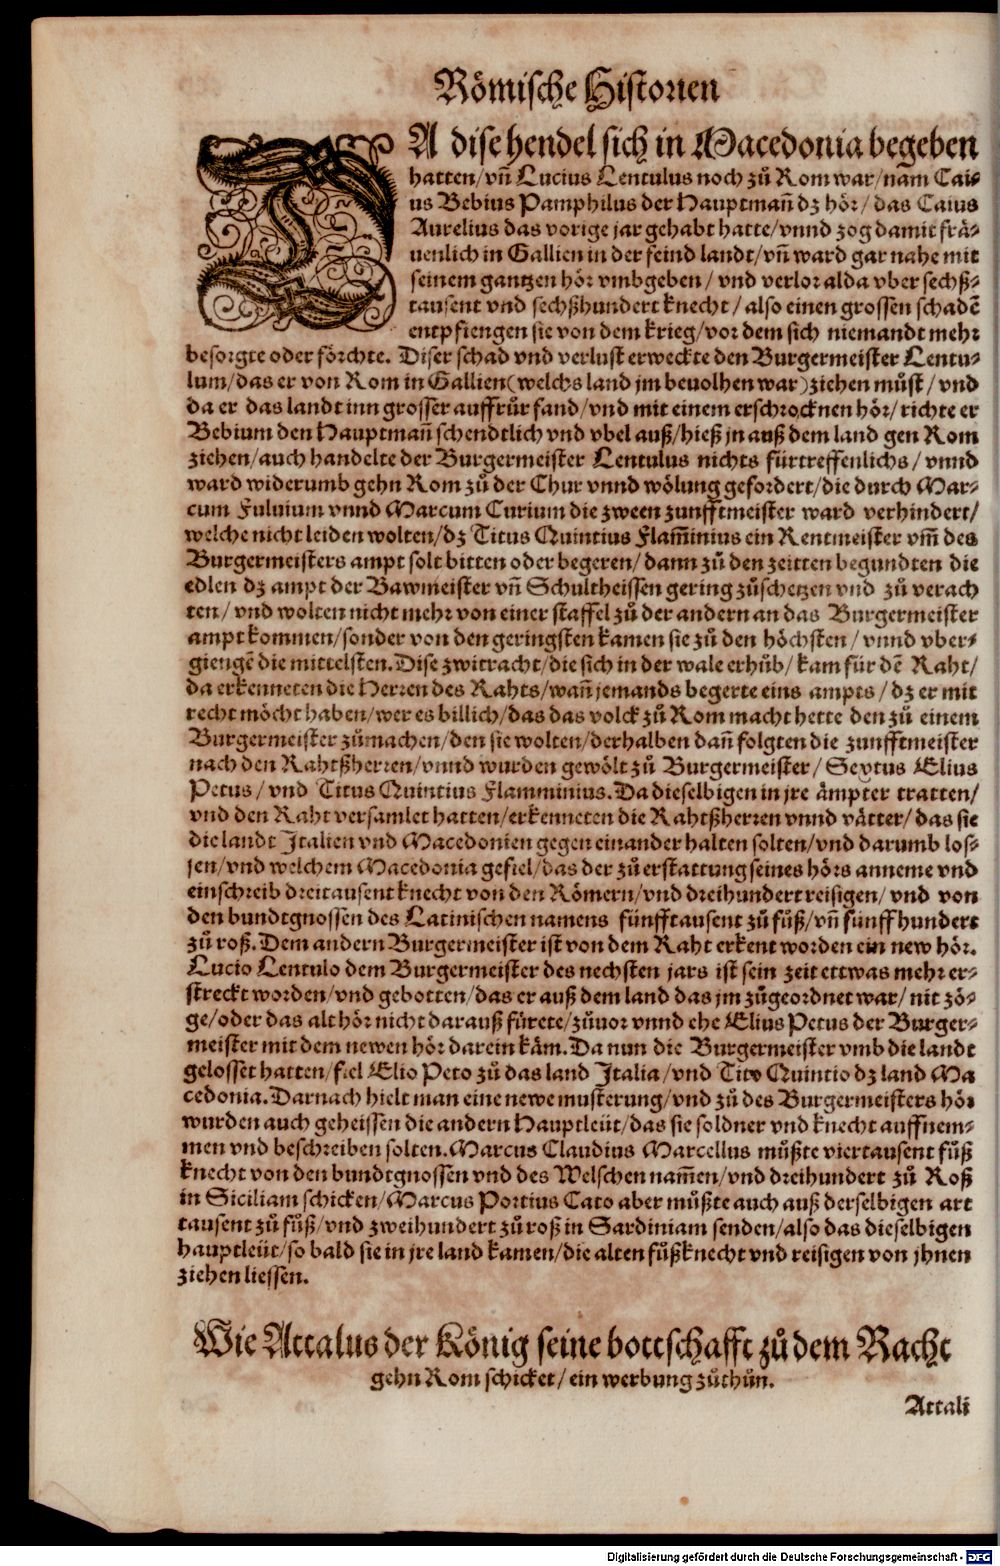 Römische Historien
DA dise hendel sich in Macedonia begeben
hatten/vn̄ Lucius Lentulus noch zů Rom war/nam Cai⸗
us Bebius Pamphilus der Hauptman̄ dz hör/das Caius
Aurelius das vorige jar gehabt hatte/vnnd zog damit frä⸗
uenlich in Gallien in der feind landt/vn̄ ward gar nahe mit
seinem gantzen hör vmbgeben/vnd verlor alda vber sechß⸗
tausent vnd sechßhundert knecht/also einen grossen schadē
entpfiengen sie von dem krieg/vor dem sich niemandt mehr
besorgte oder förchte. Diser schad vnd verlust erweckte den Burgermeister Lentu⸗
lum/das er von Rom in Gallien(welchs land jm beuolhen war)ziehen můst/vnd
da er das landt inn grosser auffrůr fand/vnd mit einem erschrocknen hör/richte er
Bebium den Hauptman̄ schendtlich vnd vbel auß/hieß jn auß dem land gen Rom
ziehen/auch handelte der Burgermeister Lentulus nichts fürtreffenlichs/vnnd
ward widerumb gehn Rom zů der Chur vnnd wölung gefordert/die durch Mar⸗
cum Fuluium vnnd Marcum Curium die zween zunfftmeister ward verhindert/
welche nicht leiden wolten/dz Titus Quintius Flam̄inius ein Rentmeister vm̄ des
Burgermeisters ampt solt bitten oder begeren/dann zů den zeitten begundten die
edlen dz ampt der Bawmeister vn̄ Schultheissen gering zůschetzen vnd zů verach
ten/vnd wolten nicht mehr von einer staffel zů der andern an das Burgermeister
ampt kommen/sonder von den geringsten kamen sie zů den höchsten/vnnd vber⸗
giengē die mittelsten. Dise zwitracht/die sich in der wale erhůb/kam für dē Raht/
da erkenneten die Herren des Rahts/wan̄ jemands begerte eins ampts/dz er mit
recht möcht haben/wer es billich/das das volck zů Rom macht hette den zů einem
Burgermeister zůmachen/den sie wolten/derhalben dan̄ folgten die zunfftmeister
nach den Rahtßherren/vnnd wurden gewölt zů Burgermeister/Sextus Elius
Petus/vnd Titus Quintius Flamminius. Da dieselbigen in jre ämpter tratten/
vnd den Raht versamlet hatten/erkenneten die Rahtßherren vnnd vätter/das sie
die landt Italien vnd Macedonien gegen einander halten solten/vnd darumb los⸗
sen/vnd welchem Macedonia gefiel/das der zů erstattung seines hörs anneme vnd
einschreib dreitausent knecht von den Römern/vnd dreihundert reisigen/vnd von
den bundtgnossen des Latinischen namens fünfftausent zů fůß/vn̄ fünffhundert
zů roß. Dem andern Burgermeister ist von dem Raht erkent worden ein new hör.
Lucio Lentulo dem Burgermeister des nechsten jars ist sein zeit ettwas mehr er⸗
streckt worden/vnd gebotten/das er auß dem land das jm zůgeordnet war/nit zö⸗
ge/oder das alt hör nicht darauß fürete/zůuor vnnd ehe Elius Petus der Burger⸗
meister mit dem newen hör darein käm. Da nun die Burgermeister vmb die landt
gelosset hatten/fiel Elio Peto zů das land Italia/vnd Tito Quintio dz land Ma
cedonia. Darnach hielt man eine newe musterung/vnd zů des Burgermeisters hör
wurden auch geheissen die andern Hauptleüt/das sie soldner vnd knecht auffnem⸗
men vnd beschreiben solten. Marcus Claudius Marcellus můßte viertausent fůß
knecht von den bundtgnossen vnd des Welschen nam̄en/vnd dreihundert zů Roß
in Siciliam schicken/Marcus Portius Cato aber můßte auch auß derselbigen art
tausent zů fůß/vnd zweihundert zů roß in Sardiniam senden/also das dieselbigen
hauptleüt/so bald sie in jre land kamen/die alten fůßknecht vnd reisigen von jhnen
ziehen liessen.
Wie Attalus der König seine bottschafft zů dem Racht
gehn Rom schicket/ein werbung zůthůn.
Attali
Digitalisierung gefördert durch die Deutsche Forschungsgemeinschaft - DFG